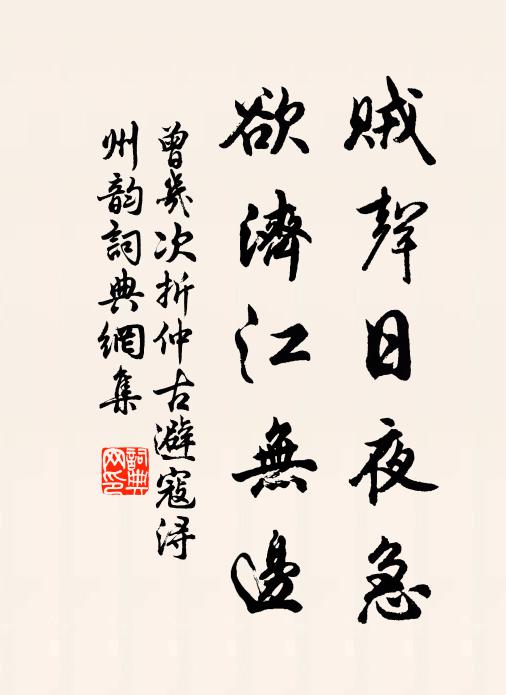 賊聲日夜急
欲濟江無邊
曾幾次折仲古避寇浔
州韵詞典網集
詞典网印